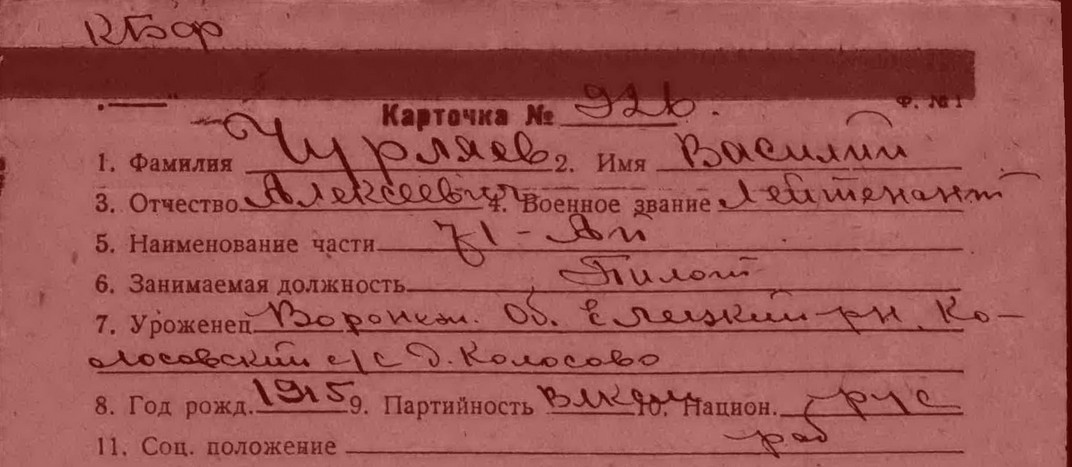 КБФ
Ф. №1
Карточка № 926.
1. Фамилия Чурляев 2. Имя Василий
3. Отчество Алексеевич 4. Военное звание Лейтенант
5. Наименование части 71-АП
6. Занимаемая должность Пилот
7. Уроженец Воронеж. Об. Елецкий рн. Ко-
олосовский с/с д. Колосово
8. Год рожд. 1915 9. Партийность ВЛКСМ 10. Национ. рус
11. Соц. положение раб